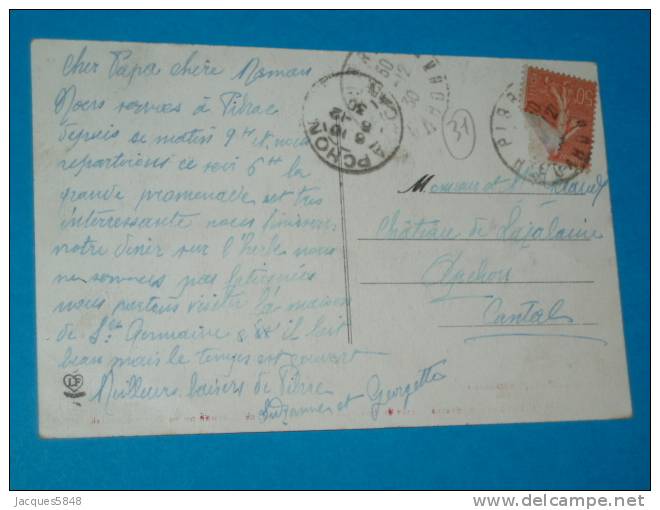 Cher Papa chère Maman
Nous sommes à Pibrac
depuis ce matin 9h et nous
repartirons ce soir 6h la
grande promenade est très
interressante nous finissons
notre diner sur l'herbe nous
ne sommes pas fatiguées
nous partons visiter la maison
de Ste Germaine il fait
beau mais le temps est couvert
Meilleurs baisers de Pibrac
Suzanne et Georgette
31
APCHON
CANTAL
30
Monsieur et M
Château de
Apchon
Cantal
50
Jacques5848
www.delcampe.net